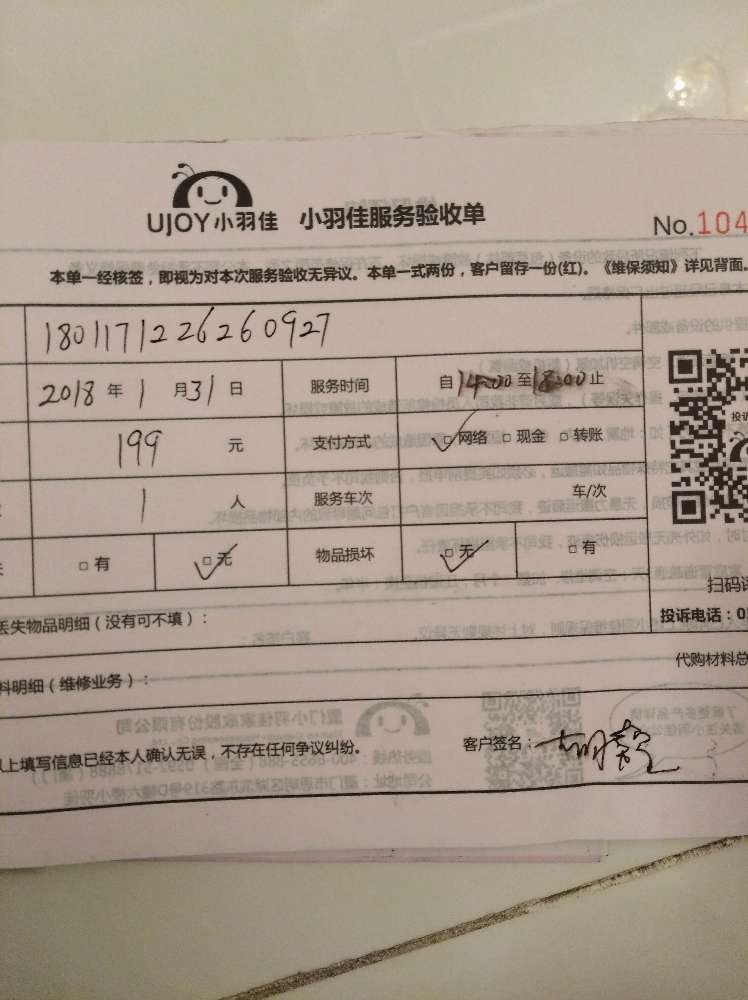 UJOY小羽佳 小羽佳服务验收单
No.104
本单一经核签，即视为对本次服务验收无异议。本单一式两份，客户留存一份(红)。《维保须知》详见背面。
180117122626260927
2018年1月31日 服务时间 自14:00至18:00止
199元 支付方式 ☑网络 □现金 □转账
投诉
1人 服务车次 车/次
□有 ☑无 物品损坏 ☑无 □有
扫码
丢失物品明细（没有可不填）：
投诉电话：0
料明细（维修业务）：
代购材料总
以上填写信息已经本人确认无误，不存在任何争议纠纷。
客户签名：